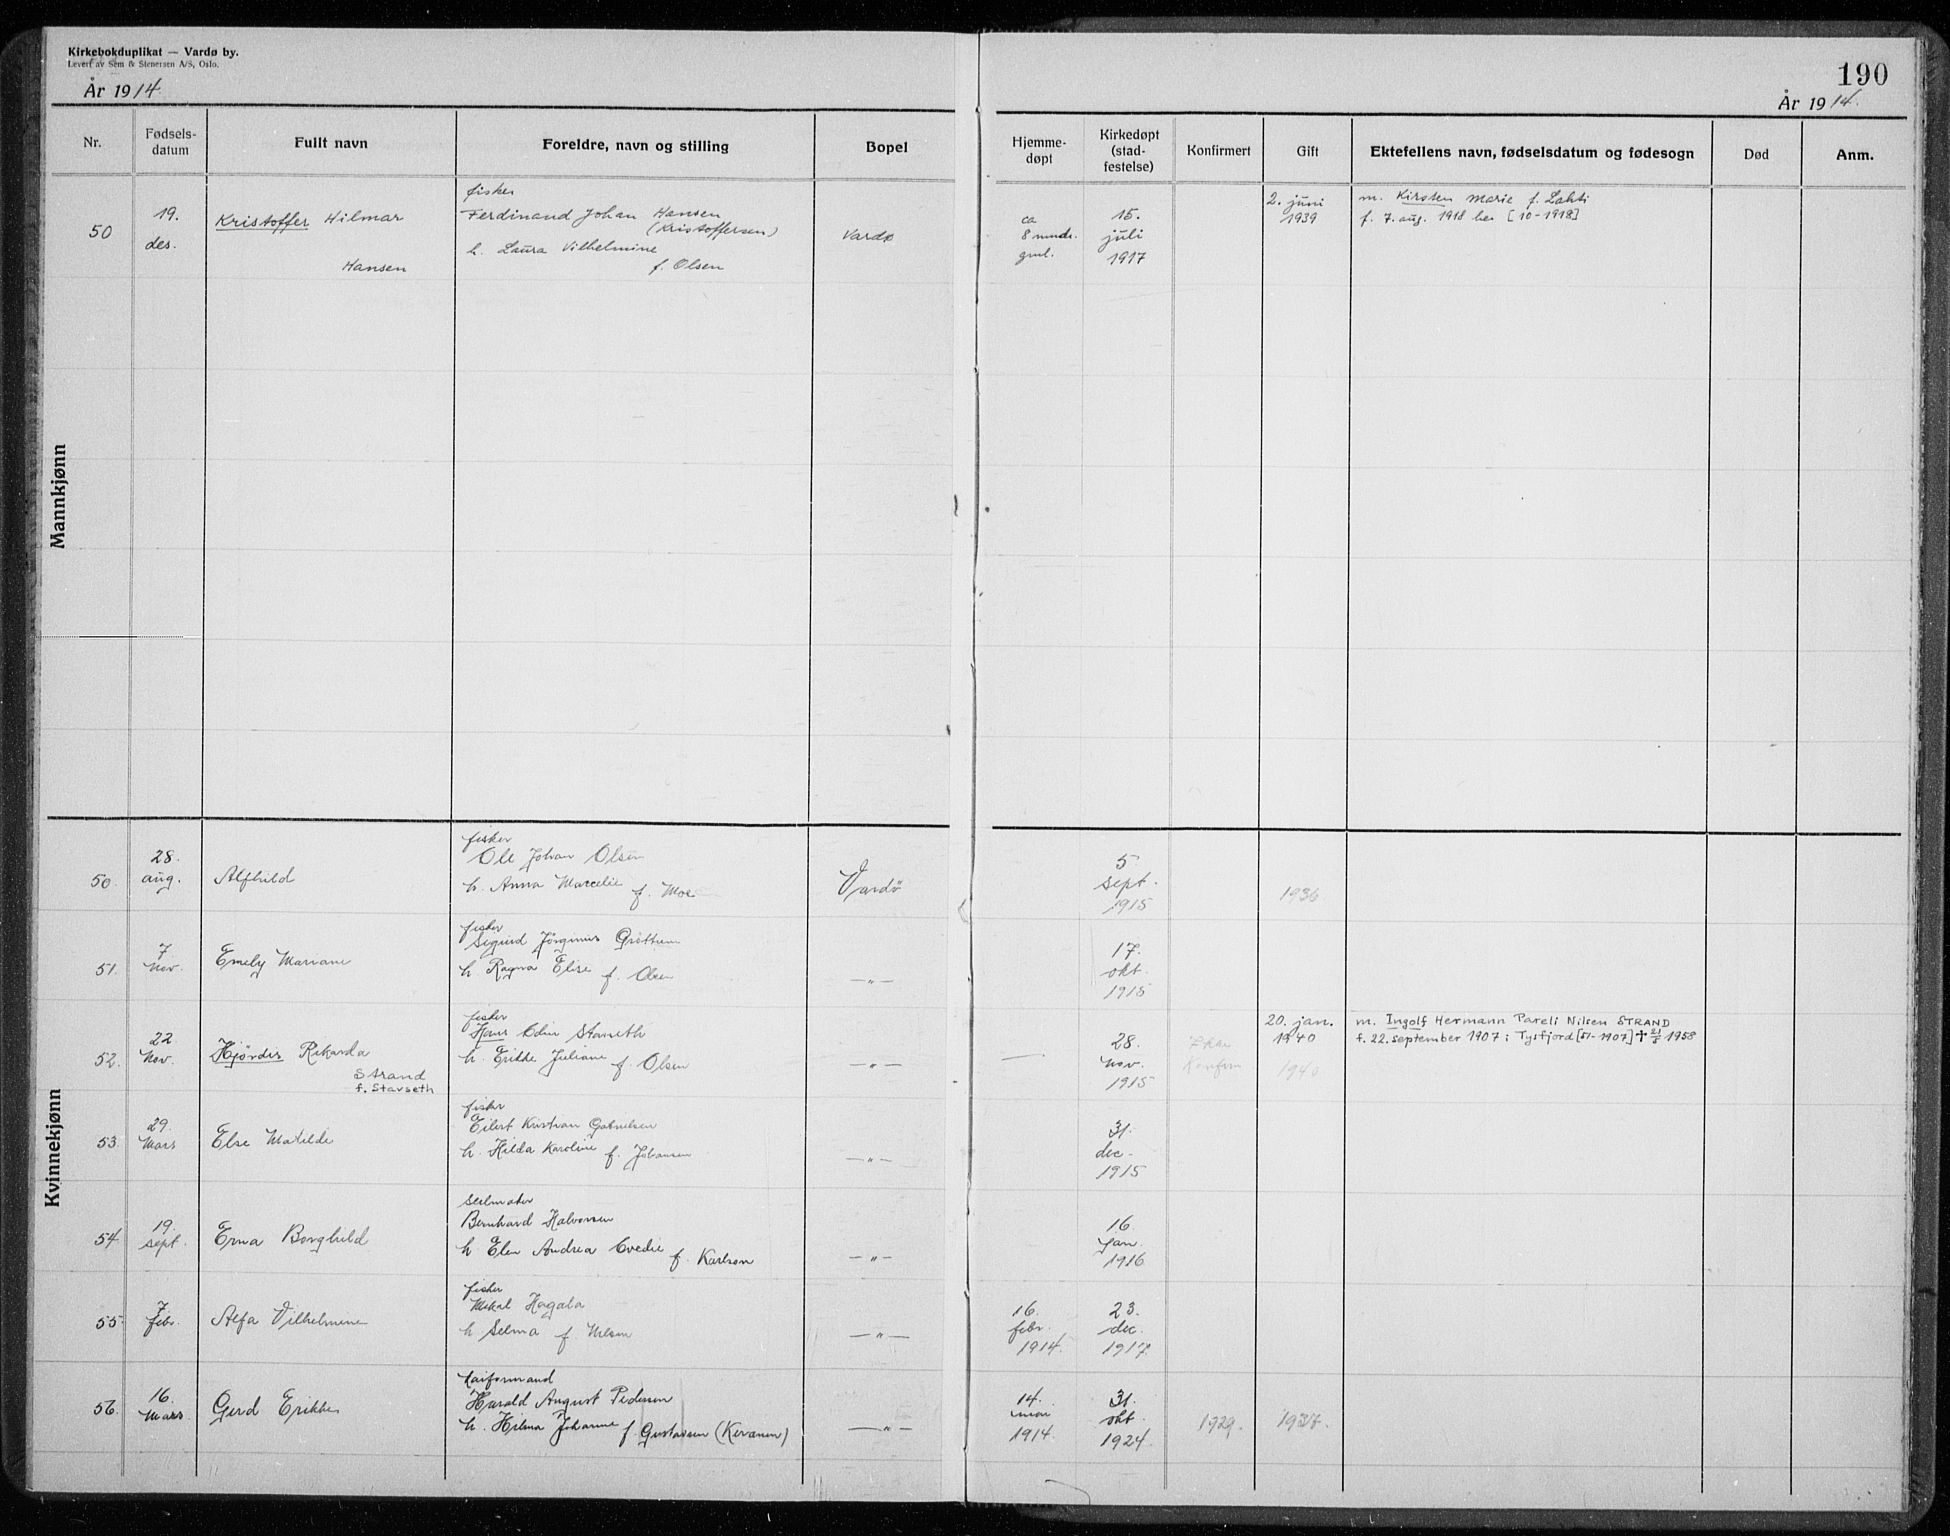 Kirkebokduplikat — Vardø by.
Levert av Sem & Stenersen A/S, Oslo.
År 1914
190
År 1914.
Nr.
Fødselsdatum
Fullt navn
Foreldre, navn og stilling
Bopel
Hjemmedøpt
Kirkedøpt (stadfestelse)
Konfirmert
Gift
Ektefellens navn, fødselsdatum og fødesogn
Død
Anm.
Mannkjønn
50
19. des.
Kristoffer Hilmar
Hansen
fisker
Ferdinand Johan Hansen
(Kristoffersen)
h. Laura Vilhelmine
f. Olsen
Vardø
ca 8 mndr. gml.
15. juli 1917
2. juni 1939
m. Kirsten Marie f. Lahti
f. 7. aug. 1918 her [10-1918]
Kvinnekjønn
50.
28. aug.
Alfhild
fisker
Ole Johan Olsen
h. Anna Marcelie f. Moe
Vardö
5. sept. 1915
1936
51.
7 Nov.
Emely Mariane
fisker
Sigurd Jörginus Gröttum
h. Ragna Elise f. Olsen
—"—
17. okt. 1915
52.
22 Nov.
Hjördis Rikarda
Strand
f. Stavseth
fisker
Hans Edin Stavseth
h. Erikke Juliane f. Olsen
—"—
—
28. nov. 1915
konfirm
20. jan. 1940
1940
m. Ingolf Hermann Pareli Nilsen STRAND
f. 22. september 1907 i Tysfjord [51-1907] ✝ 21/5 1958
53.
29. Mars
Else Matilde
fisker
Eilert Kristian Gabrielsen
h. Hilda Karoline f. Johansen
—"—
31. dec. 1915
54.
19. sept.
Erna Borghild
Seilmaker
Bernhard Halvorsen
h. Elen Andrea Evedie f. Karlson
—"—
16. jan. 1916
55.
7 febr.
Alfa Vilhelmine
fisker
Mikal Hagala
h. Selma f. Nilsen
—"—
16. febr. 1914.
23. dec. 1917.
56.
16. Mars
Gerd Erikke
Kaiformand
Harald August Pedersen
h. Hilma Johanne f. Gustavsen (Keranen)
—"—
14. mai 1914.
31. okt. 1924.
1929.
1937.